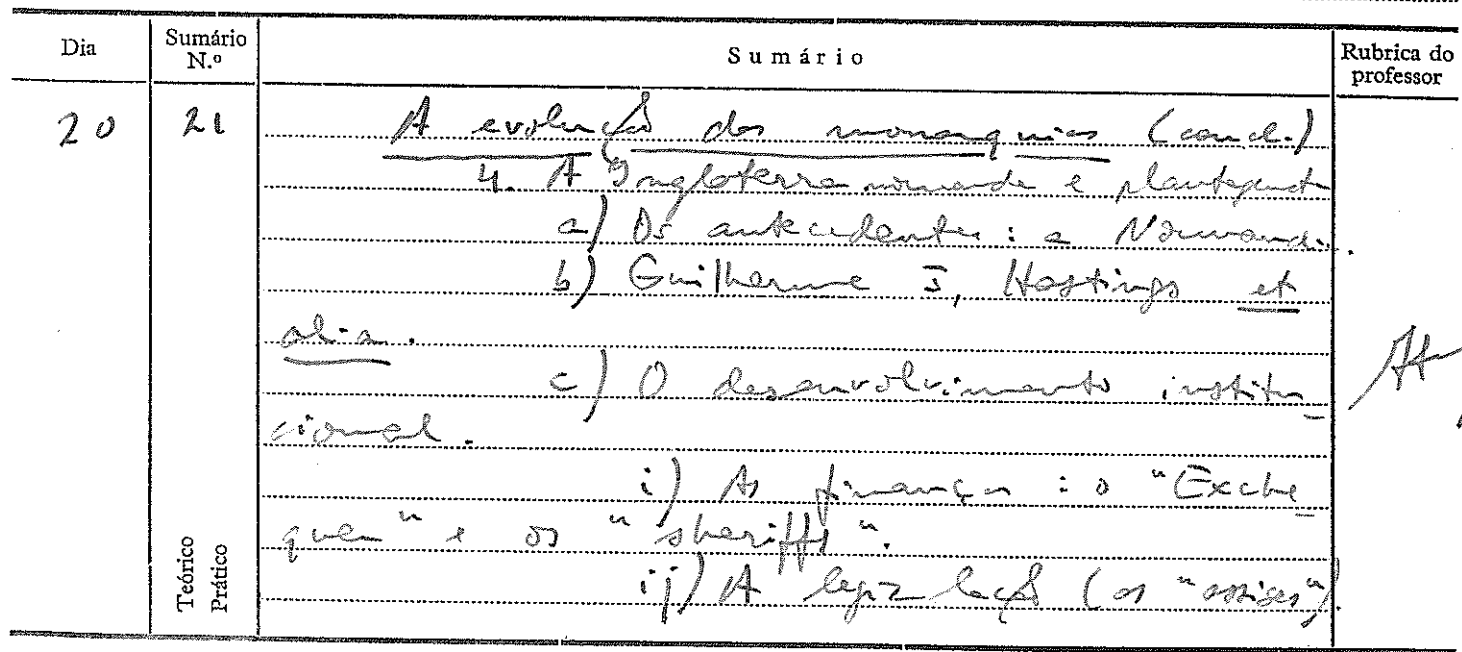 Dia Sumário N.º Sumário Rubrica do professor
20 21 A evolução das monarquias (concl.)
4. A Inglaterra normanda e plantageneta
a) Os antecedentes: a Normandia.
b) Guilherme I, Hastings et
alia.
c) O desenvolvimento institu-
cional.
i) As finanças: o "Exche-
quer" e os "sheriffs".
ij) A legislação (as "assises").
Teórico
Prático